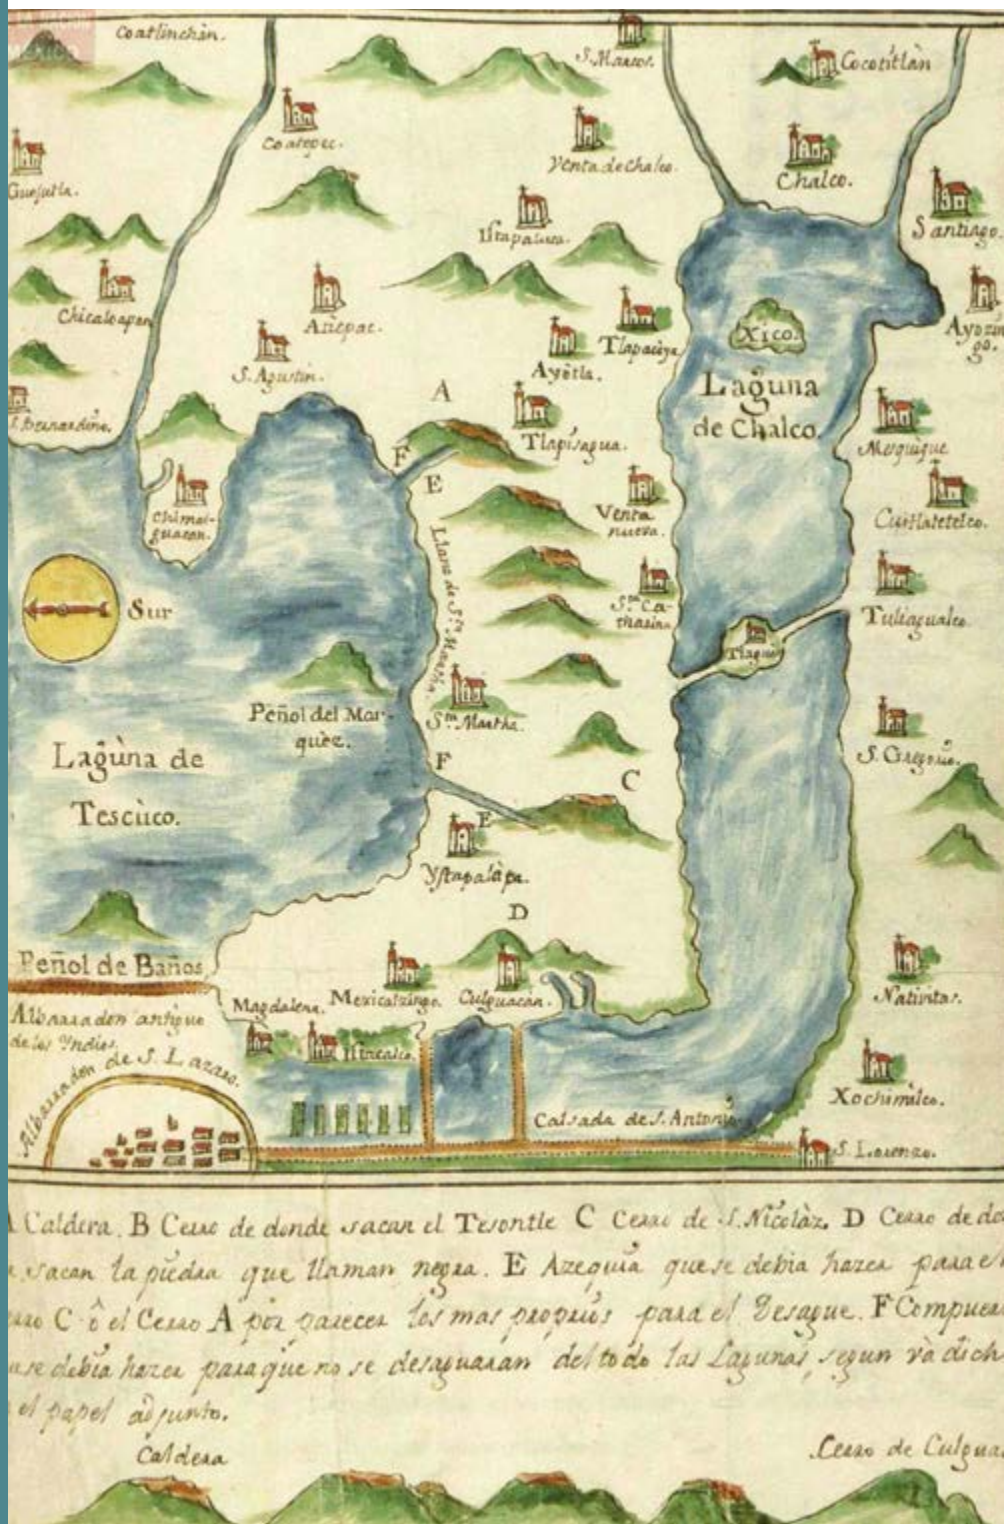 MÉXICO
Coatlinchán.
S. Marcos.
Cocotitlàn
Coatepec.
Venta de Chalco.
Chalco.
Guejutla.
Santiago.
Istapaluca.
Chicaloapan
Aticpac.
Tlapacoya
Xico.
Ayozin
go.
S. Agustin.
Ayòtla.
Laguna
de Chalco.
S. Bernardino.
A
Tlapisagua.
Mesquique
F
E
Chimal-
guacan.
Venta
nueva.
Cuitlatetelco.
Llano de Sta. Martha
Sur
Sta. Ca-
tharina
Tuliagualco.
Tlaguac
Peñol del Mar-
quèz.
Sta. Martha.
S. Gregorio.
Laguna de
Tescùco.
F
C
E
Ystapalàpa.
D
Peñol de Baños
Mexicalzingo.
Culguacàn.
Nativitas.
Magdalena.
Albarradon antiguo
de los Yndios.
Albarradon de S. Lazaro.
Ittacalco.
Xochimilco.
Calsada de S. Antonio
S. Lorenzo.
A Caldera. B Cerro de donde sacan el Tesontle C Cerro de S. Nicolàz. D Cerro de do
sacan la piedra que llaman negra. E Azequia que se debia hazer para e
C ô el Cerro A por parecer los mas propios para el Desague. F Compuer
se debia hazer para que no se desaguaran del todo las Lagunas, segun và dich
el papel adjunto.
Caldera
Cerro de Culgua